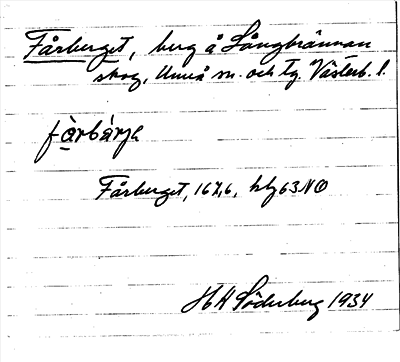 Fårberget, berg å Långbrännan
skog, Umeå sn. och tg. Västerb. l.
fàrbárjə
Fårberget, 167,6, kbl 63 NO
H A Söderberg 1934